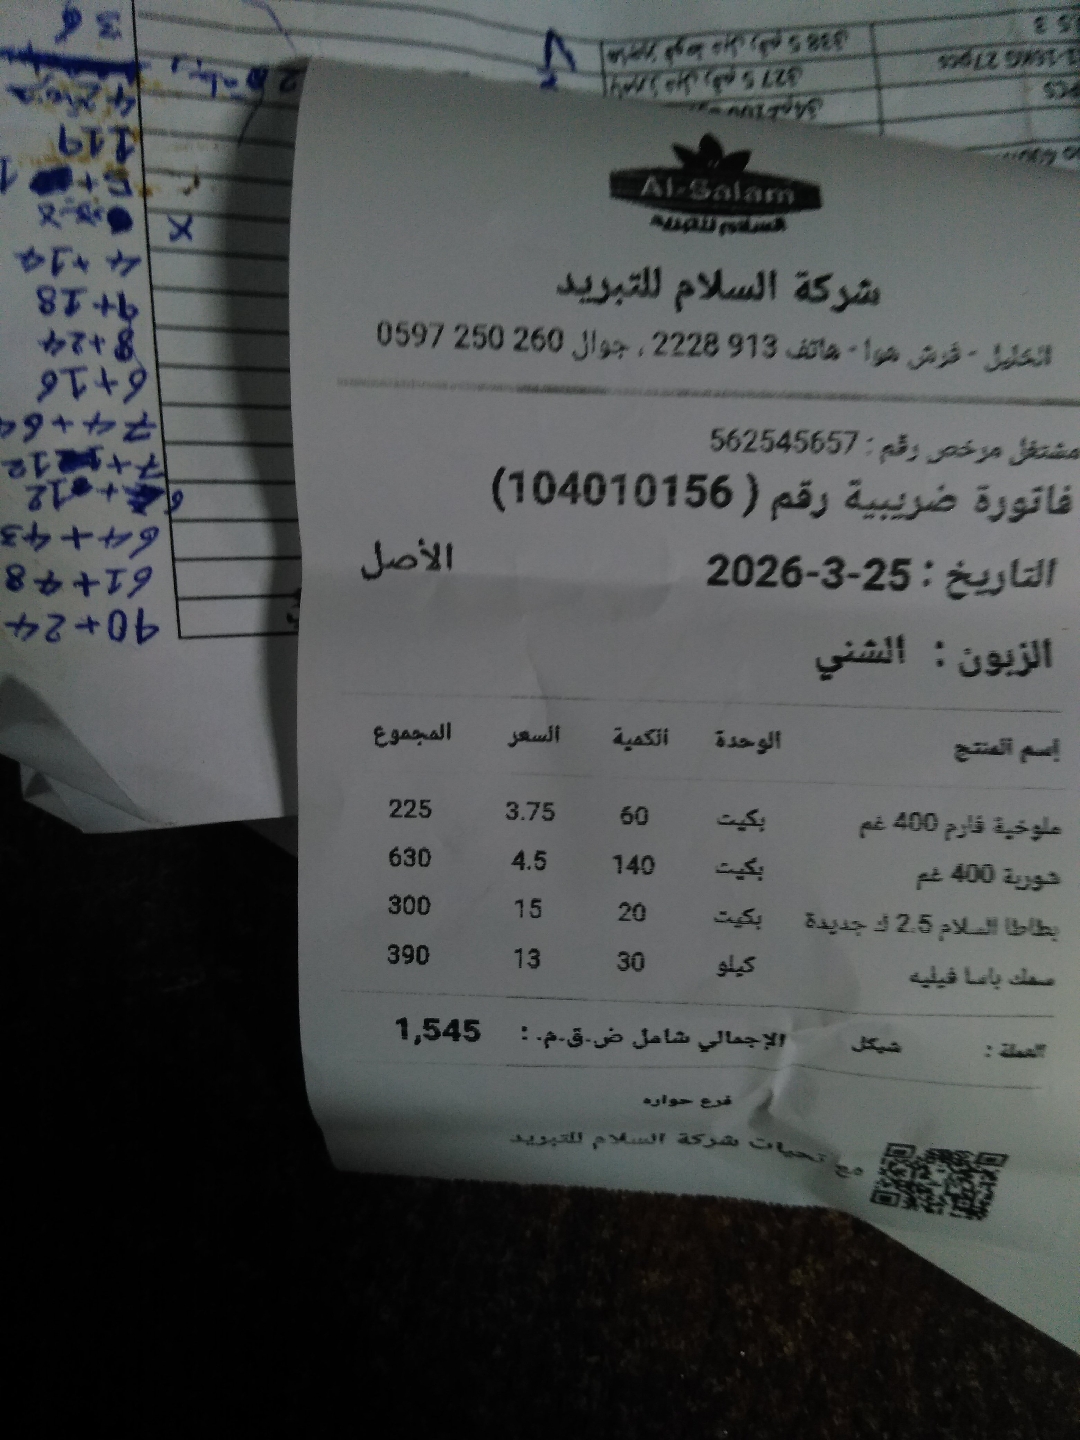 Al-Salam
السلام للتبريد
شركة السلام للتبريد
الخليل - فرش هوا - هاتف 913 2228 ، جوال 260 250 0597
مشتغل مرخص رقم : 562545657
فاتورة ضريبية رقم ( 104010156)
التاريخ : 25-3-2026 الأصل
الزبون : الشني
إسم المنتج الوحدة الكمية السعر المجموع
ملوخية فارم 400 غم بكيت 60 3.75 225
شوربة 400 غم بكيت 140 4.5 630
بطاطا السلام 2.5 ك جديدة بكيت 20 15 300
سمك باسا فيليه كيلو 30 13 390
العملة : شيكل الإجمالي شامل ض.ق.م. : 1,545
فرع حواره
مع تحيات شركة السلام للتبريد
90+24
61+48
64+43
7+12
74+64
6+16
8+24
9+18
4+14
119
36
X